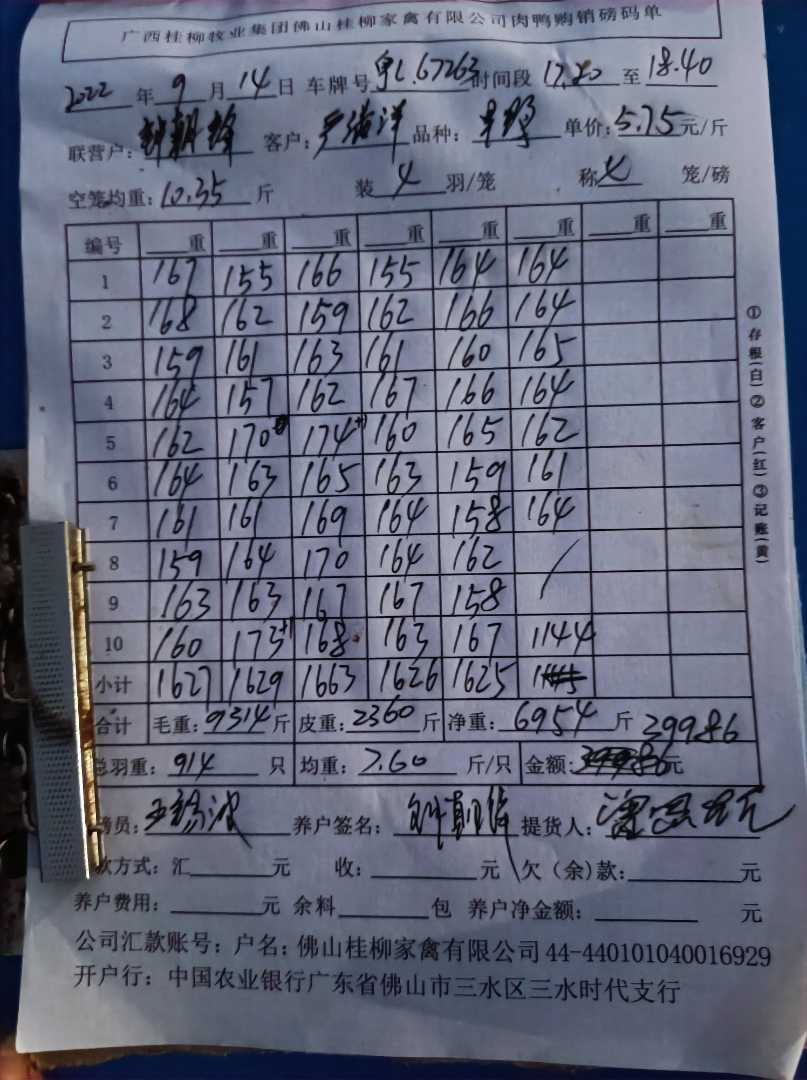 广西桂柳牧业集团佛山桂柳家禽有限公司肉鸭购销磅码单
2022 年 9 月 14 日 车牌号 粤L.67263 时间段 17.20 至 18.40
联营户: 客户: 品种: 单价: 5.75 元/斤
空笼均重: 10.35 斤 装 4 羽/笼 称 笼/磅
编号 重 重 重 重 重 重 重 重
1 167 155 166 155 164 164
2 168 162 159 162 166 164
3 159 161 163 161 160 165
4 164 157 162 167 166 164
5 162 170 174+1 160 165 162
6 164 163 165 163 159 161
7 161 161 169 164 158 164
8 159 164 170 164 162 /
9 163 163 167 167 158
10 160 173+1 168 163 167 1144
小计 1627 1629 1663 1626 1625
合计 毛重: 9314 斤 皮重: 2360 斤 净重: 6954 斤 39986
总羽重: 914 只 均重: 7.60 斤/只 金额: 元
员: 养户签名: 提货人:
款方式: 汇 元 收: 元 欠(余)款: 元
养户费用: 元 余料 包 养户净金额: 元
公司汇款账号: 户名: 佛山桂柳家禽有限公司 44-440101040016929
开户行: 中国农业银行广东省佛山市三水区三水时代支行
①存根(白)②客户(红)③记账(黄)